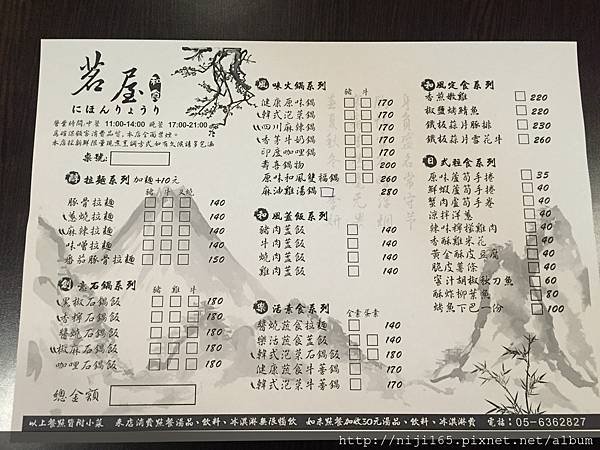 茗屋
にほんりょうり
營業時間:中餐 11:00-14:00 晚餐 17:00-21:00
為確保顧客消費品質,本店全面禁煙。
桌號:
拉麵系列 加麵+10元
豬 牛 叉燒
豚骨拉麵 140
蔥燒拉麵 140
麻辣拉麵 140
味噌拉麵 140
番茄豚骨拉麵 150
創意石鍋系列
豬 雞 牛
黑椒石鍋飯 180
香檸石鍋飯 180
醬燒石鍋飯 180
椒麻石鍋飯 180
咖哩石鍋飯 180
總金額
風味火鍋系列
豬 牛
健康原味鍋 170
韓式泡菜鍋 170
四川麻辣鍋 170
香茅牛奶鍋 170
印度咖哩鍋 170
壽喜鍋物 200
原味和風雙福鍋 260
麻油雞湯鍋 280
和風蓋飯系列
豬肉蓋飯 140
牛肉蓋飯 140
燒肉蓋飯 140
雞肉蓋飯 140
樂活素食系列
全素 蛋素
醬燒蔬食拉麵 140
樂活蔬食蓋飯 140
韓式泡菜石鍋飯 180
健康蔬食斗蕃鍋 170
韓式泡菜斗蕃鍋 170
和風定食系列
香煎嫩雞 220
椒鹽烤鯖魚 220
鐵板蒜片豚排 230
鐵板蒜片雪花牛 260
日式輕食系列
原味蘆筍手捲 35
鮮蝦蘆筍手捲 40
蟹肉蘆筍手卷 40
涼拌洋蔥 40
辣味檸檬雞肉 40
香酥雞米花 40
黃金酥皮豆腐 40
脆皮薯條 40
蜜汁胡椒秋刀魚 60
酥炸柳葉魚 80
烤魚下巴一份 100
以上餐點皆附小菜 來店消費點餐湯品、飲料、冰淇淋無限暢飲 如未點餐加收30元湯品、飲料、冰淇淋費 電話:05-6362827
http://niji165.pixnet.net/album